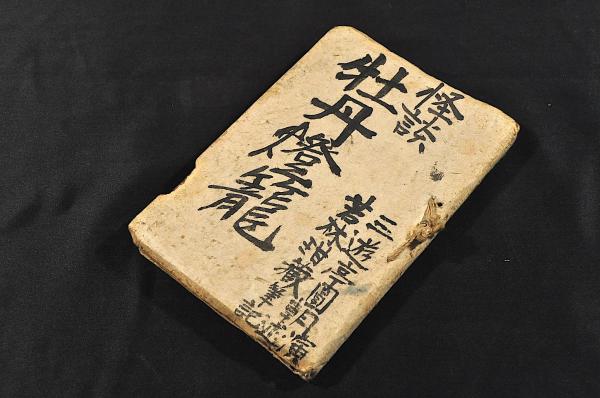 怪談
牡丹燈籠
三遊亭圓朝演述
若林玵藏筆記